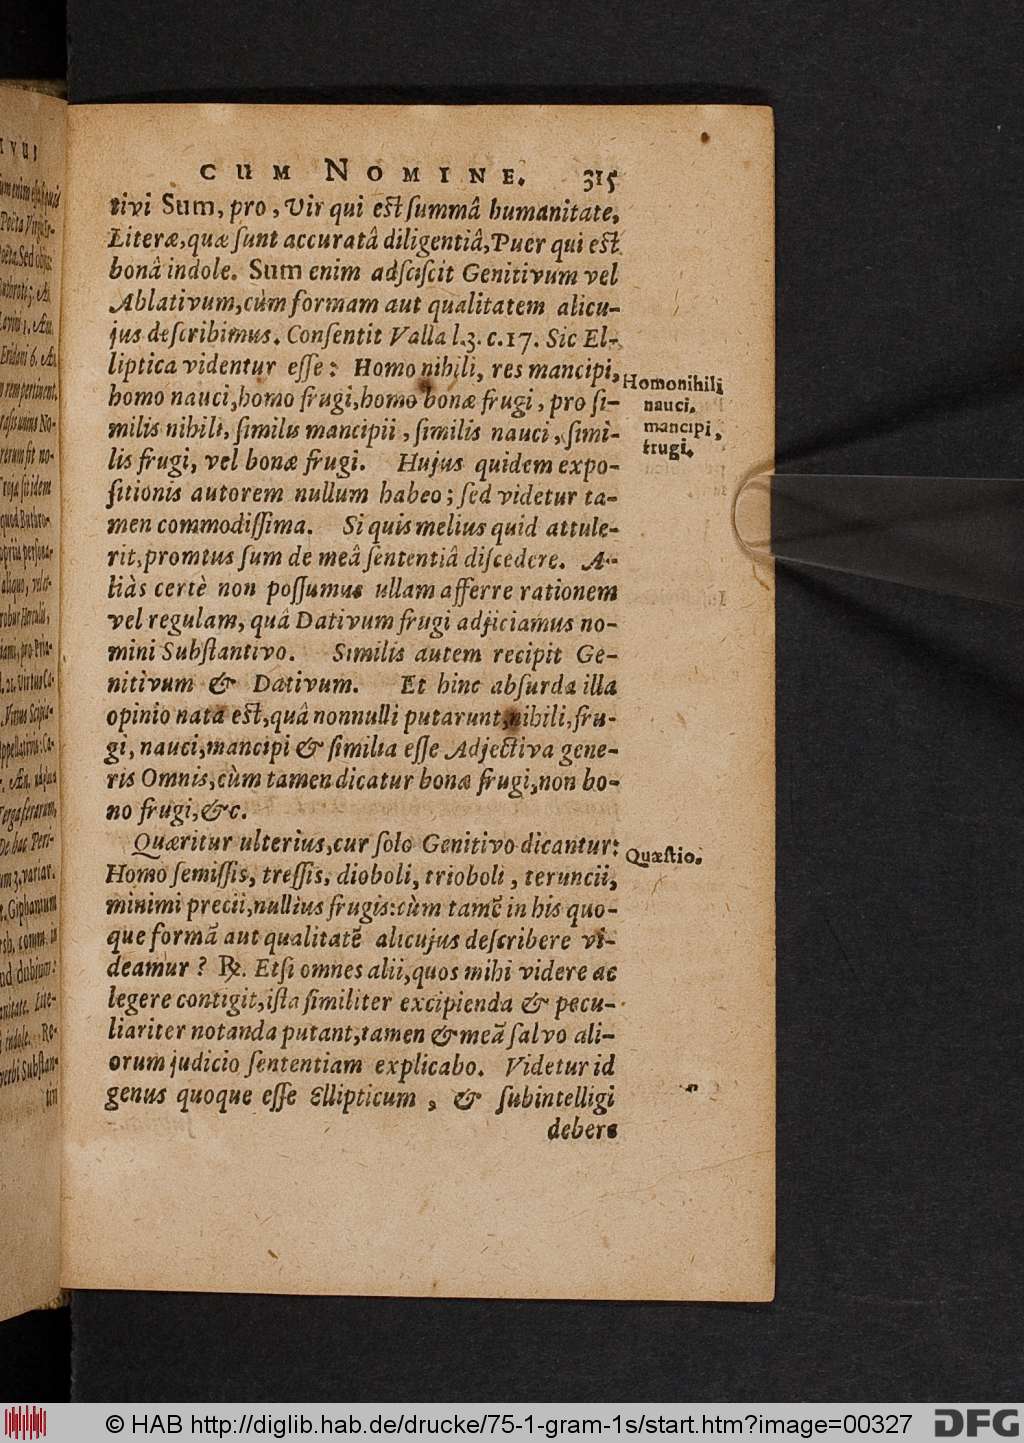 CUM NOMINE. 315
tivi Sum, pro, Vir qui est summâ humanitate,
Literæ, quæ sunt accuratâ diligentiâ, Puer qui est
bonâ indole. Sum enim adsciscit Genitivum vel
Ablativum, cùm formam aut qualitatem alicu-
jus describimus. Consentit Valla l.3. c.17. Sic El-
liptica videntur esse: Homo nihili, res mancipi,
homo nauci, homo frugi, homo bonæ frugi, pro si-
milis nihili, similis mancipii, similis nauci, simi-
lis frugi, vel bonæ frugi. Hujus quidem expo-
sitionis autorem nullum habeo; sed videtur ta-
men commodissima. Si quis melius quid attule-
rit, promtus sum de meâ sententiâ discedere. A-
liàs certè non possumus ullam afferre rationem
vel regulam, quâ Dativum frugi adjiciamus no-
mini Substantivo. Similis autem recipit Ge-
nitivum & Dativum. Et hinc absurda illa
opinio nata est, quâ nonnulli putarunt, nihili, fru-
gi, nauci, mancipi & similia esse Adjectiva gene-
ris Omnis, cùm tamen dicatur bonæ frugi, non bo-
no frugi, &c.
Homo nihili
nauci.
mancipi,
frugi.
Quæritur ulterius, cur solo Genitivo dicantur:
Homo semissis, tressis, dioboli, trioboli, teruncii,
minimi precii, nullius frugis: cùm tamē in his quo-
que formā aut qualitatē alicujus describere vi-
deamur? ℞. Etsi omnes alii, quos mihi videre ac
legere contigit, ista similiter excipienda & pecu-
liariter notanda putant, tamen & meā salvo ali-
orum judicio sententiam explicabo. Videtur id
genus quoque esse Ellipticum, & subintelligi
debere
Quæstio.
© HAB http://diglib.hab.de/drucke/75-1-gram-1s/start.htm?image=00327
DFG